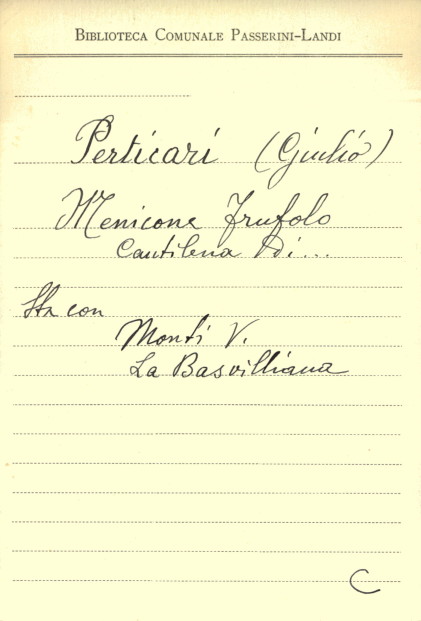 BIBLIOTECA COMUNALE PASSERINI-LANDI
Perticari (Giulio)
Menicone Frufolo
Cantilena di...
Sta con
Monti V.
La Basvilliana
C